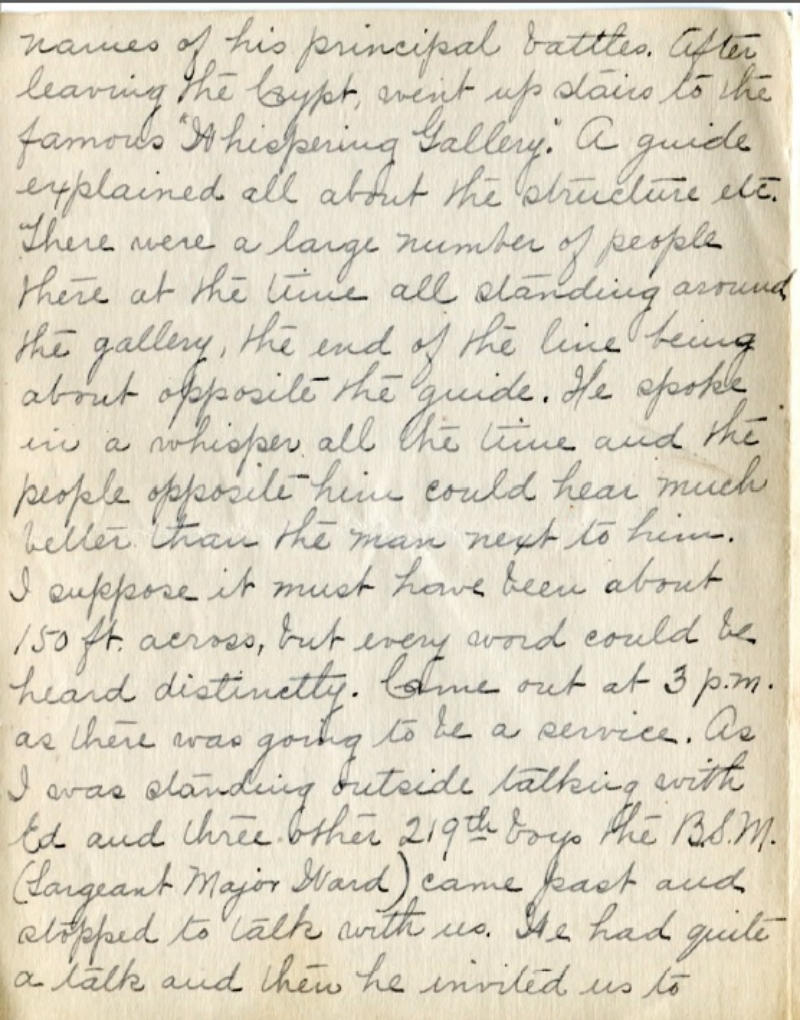 names of his principal battles. After
leaving the Crypt, went up stairs to the
famous "Whispering Gallery". A guide
explained all about the structure etc.
There were a large number of people
there at the time all standing around
the gallery, the end of the line being
about opposite the guide. He spoke
in a whisper all the time and the
people opposite him could hear much
better than the man next to him.
I suppose it must have been about
150 ft. across, but every word could be
heard distinctly. Came out at 3 p.m.
as there was going to be a service. As
I was standing outside talking with
Ed and three other 219th boys the B.S.M.
(Sargeant Major Ward) came past and
stopped to talk with us. We had quite
a talk and then he invited us to